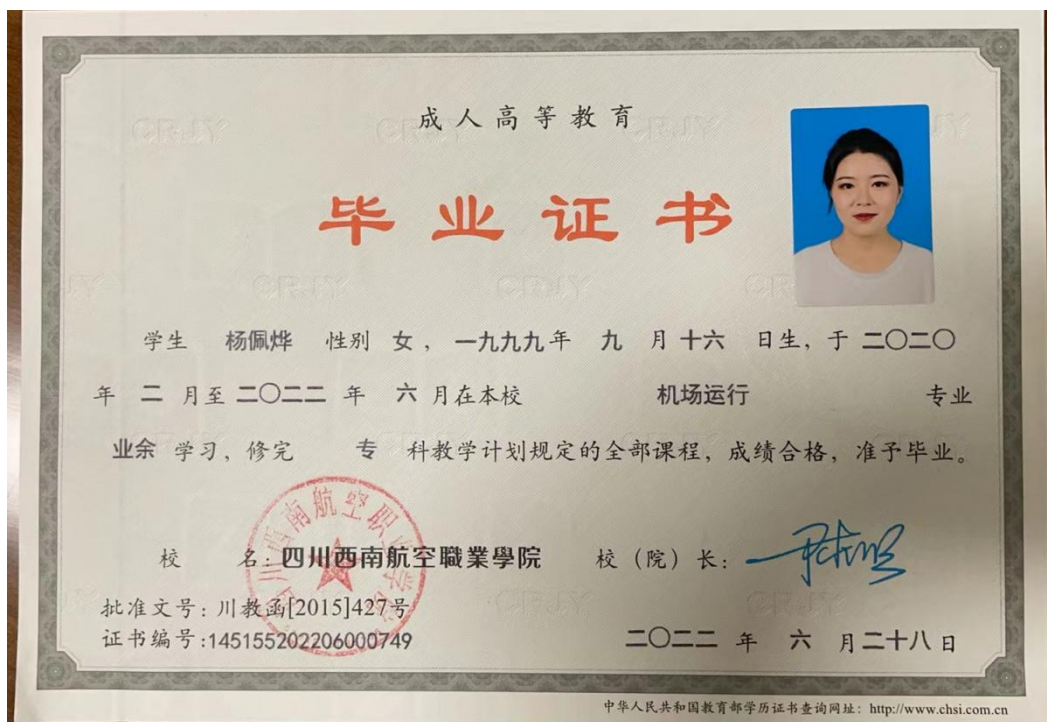 成人高等教育
毕业证书
学生 杨佩烨 性别 女，一九九九年 九 月 十六 日生，于 二〇二〇
年 二 月至 二〇二二 年 六 月在本校 机场运行 专业
业余 学习，修完 专 科教学计划规定的全部课程，成绩合格，准予毕业。
校 名：四川西南航空職業學院 校（院）长：
批准文号：川教函[2015]427号
证书编号：145155202206000749 二〇二二 年 六 月 二十八 日
中华人民共和国教育部学历证书查询网址：http://www.chsi.com.cn